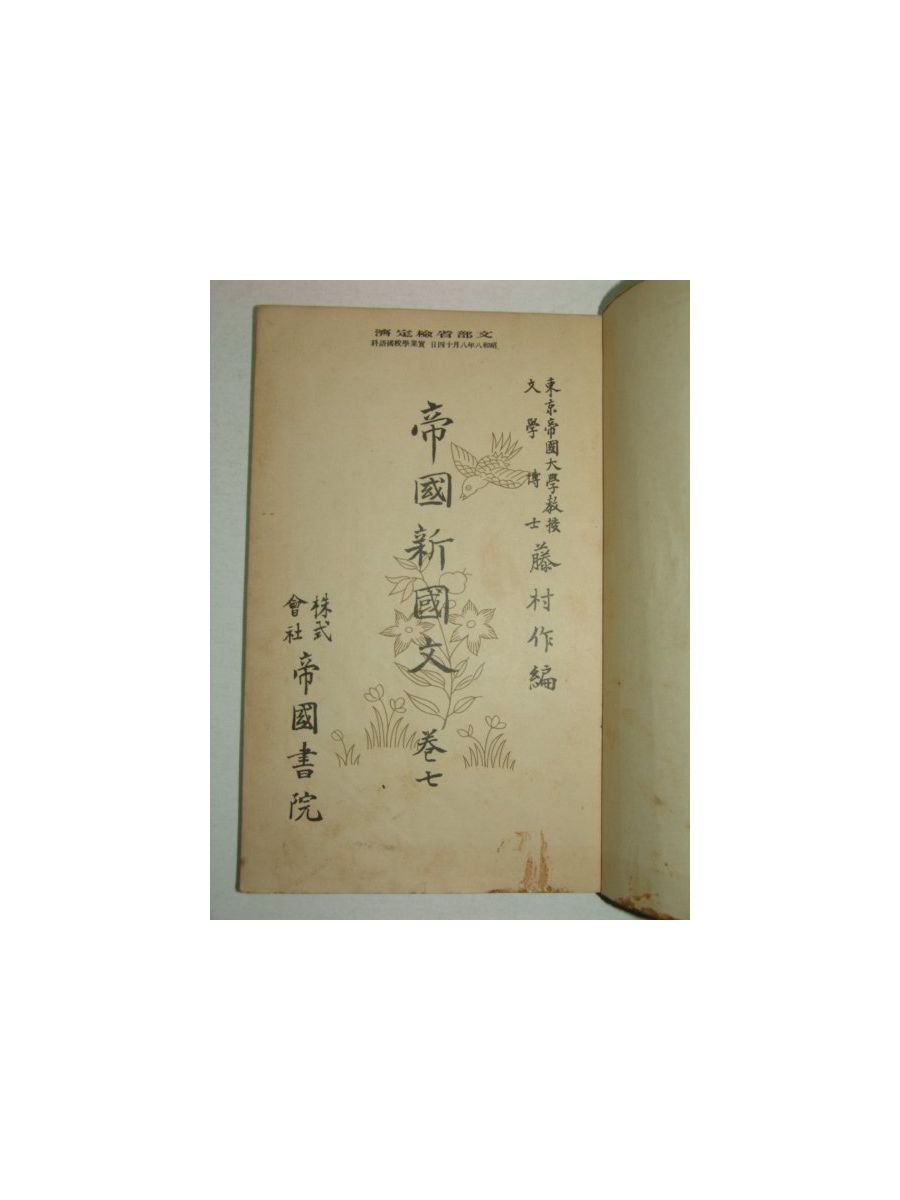 文部省檢定濟
昭和八年八月十四日 實業學校國語科
東京帝國大學教授
文學博士
藤村作編
帝國新國文 巻七
株式
會社
帝國書院